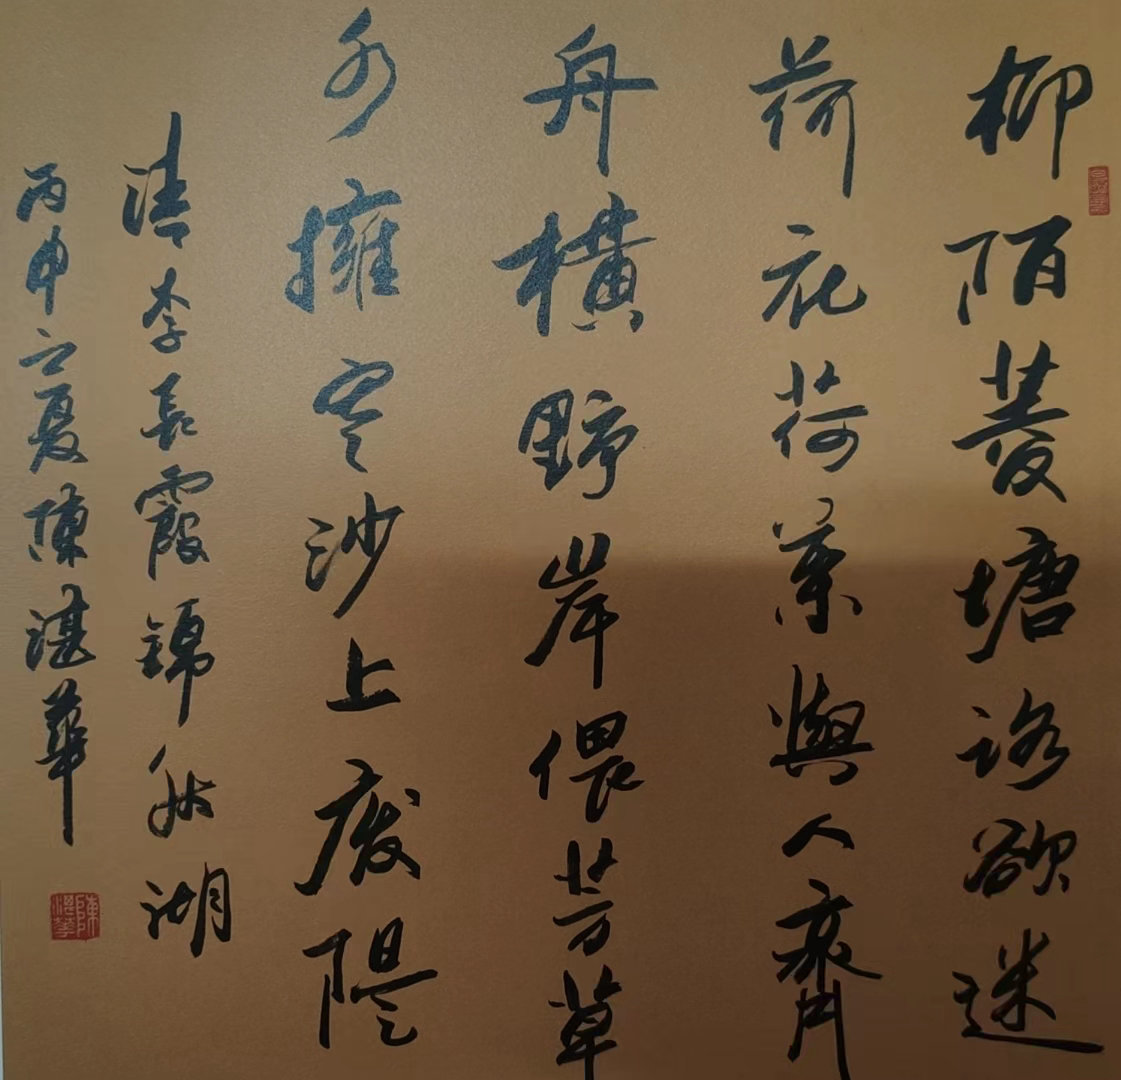 柳陌菱塘路欲迷
荷衣荷葉與人齊
舟橫野岸偎芳草
水擁寒沙上废隄
清李長霞錦秋湖
丙申立夏陳湛華
陳湛華